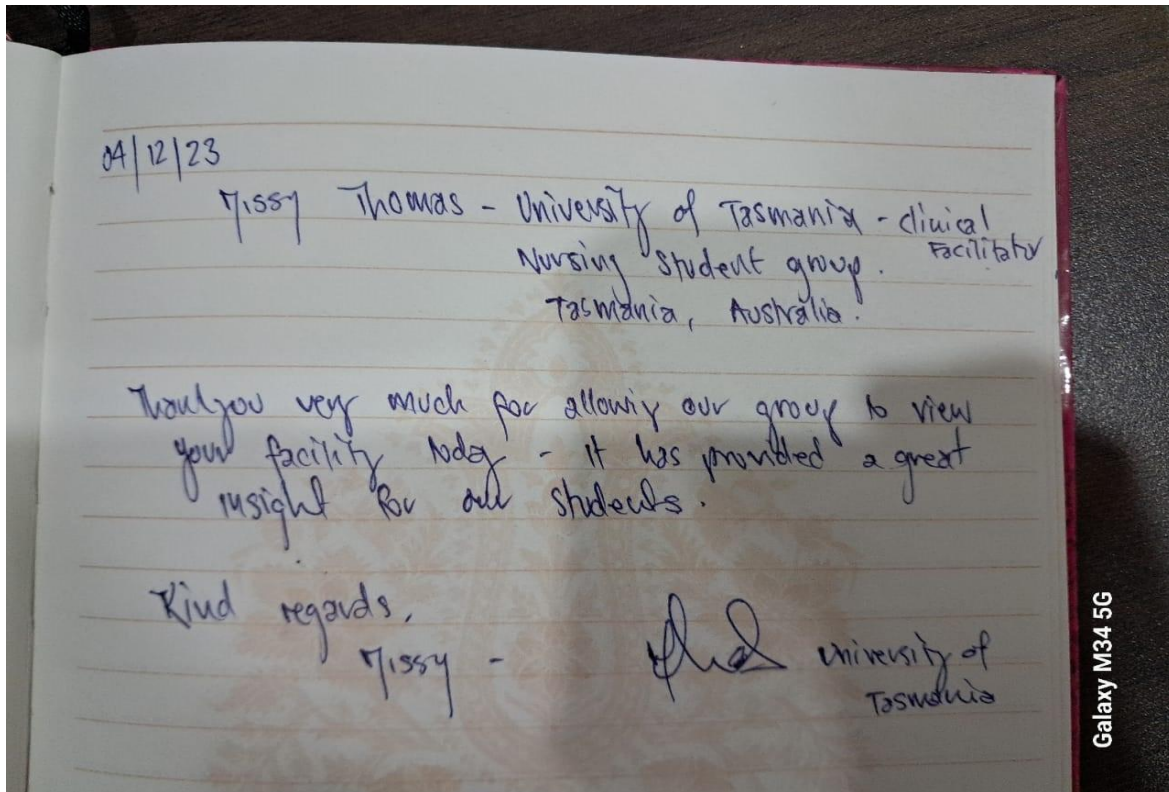 04/12/23
Jissy Thomas - University of Tasmania - clinical
Facilitator
Nursing Student group.
Tasmania, Australia.
Thankyou very much for allowing our group to view
your facility today - it has provided a great
insight for our students.
Kind regards,
Jissy -
University of
Tasmania
Galaxy M34 5G